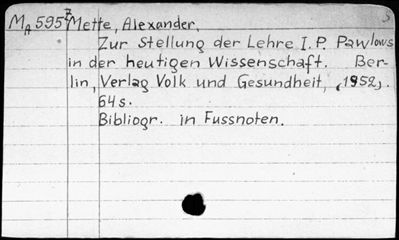 MA 5957 Mette, Alexander.
Zur Stellung der Lehre I. P. Pawlows
in der heutigen Wissenschaft. Ber-
lin, Verlag Volk und Gesundheit, (1952).
64 s.
Bibliogr. in Fussnoten.